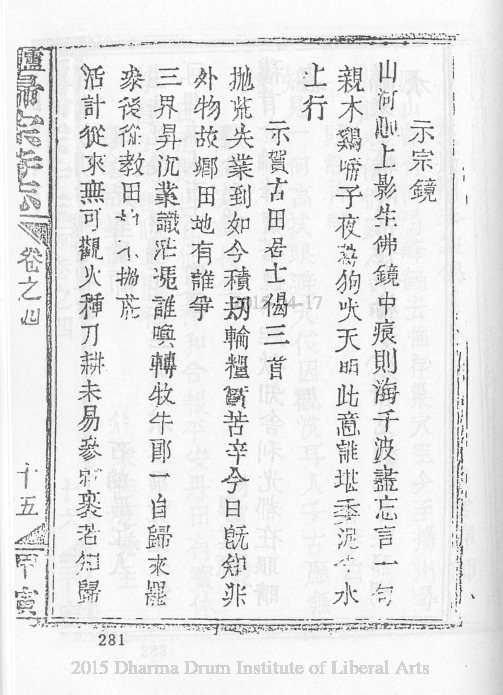 示宗鏡
山河心上影生佛鏡中痕則海千波盡忘言一句
親木鷄啼子夜芻狗吠天明此意誰堪委泥牛水
上行
示賀古田居士偈三首
拋荒失業到如今積刼輪糧實苦辛今日既知非
外物故鄉田地有誰爭
三界昇沉業識茫憑誰喚轉牧牛郎一自歸來罷
泰後從教田地不拋荒
活計從來無可觀火種刀耕未易參寂裏若知歸
卷之四
十五
甲寅
281
2015 Dharma Drum Institute of Liberal Arts